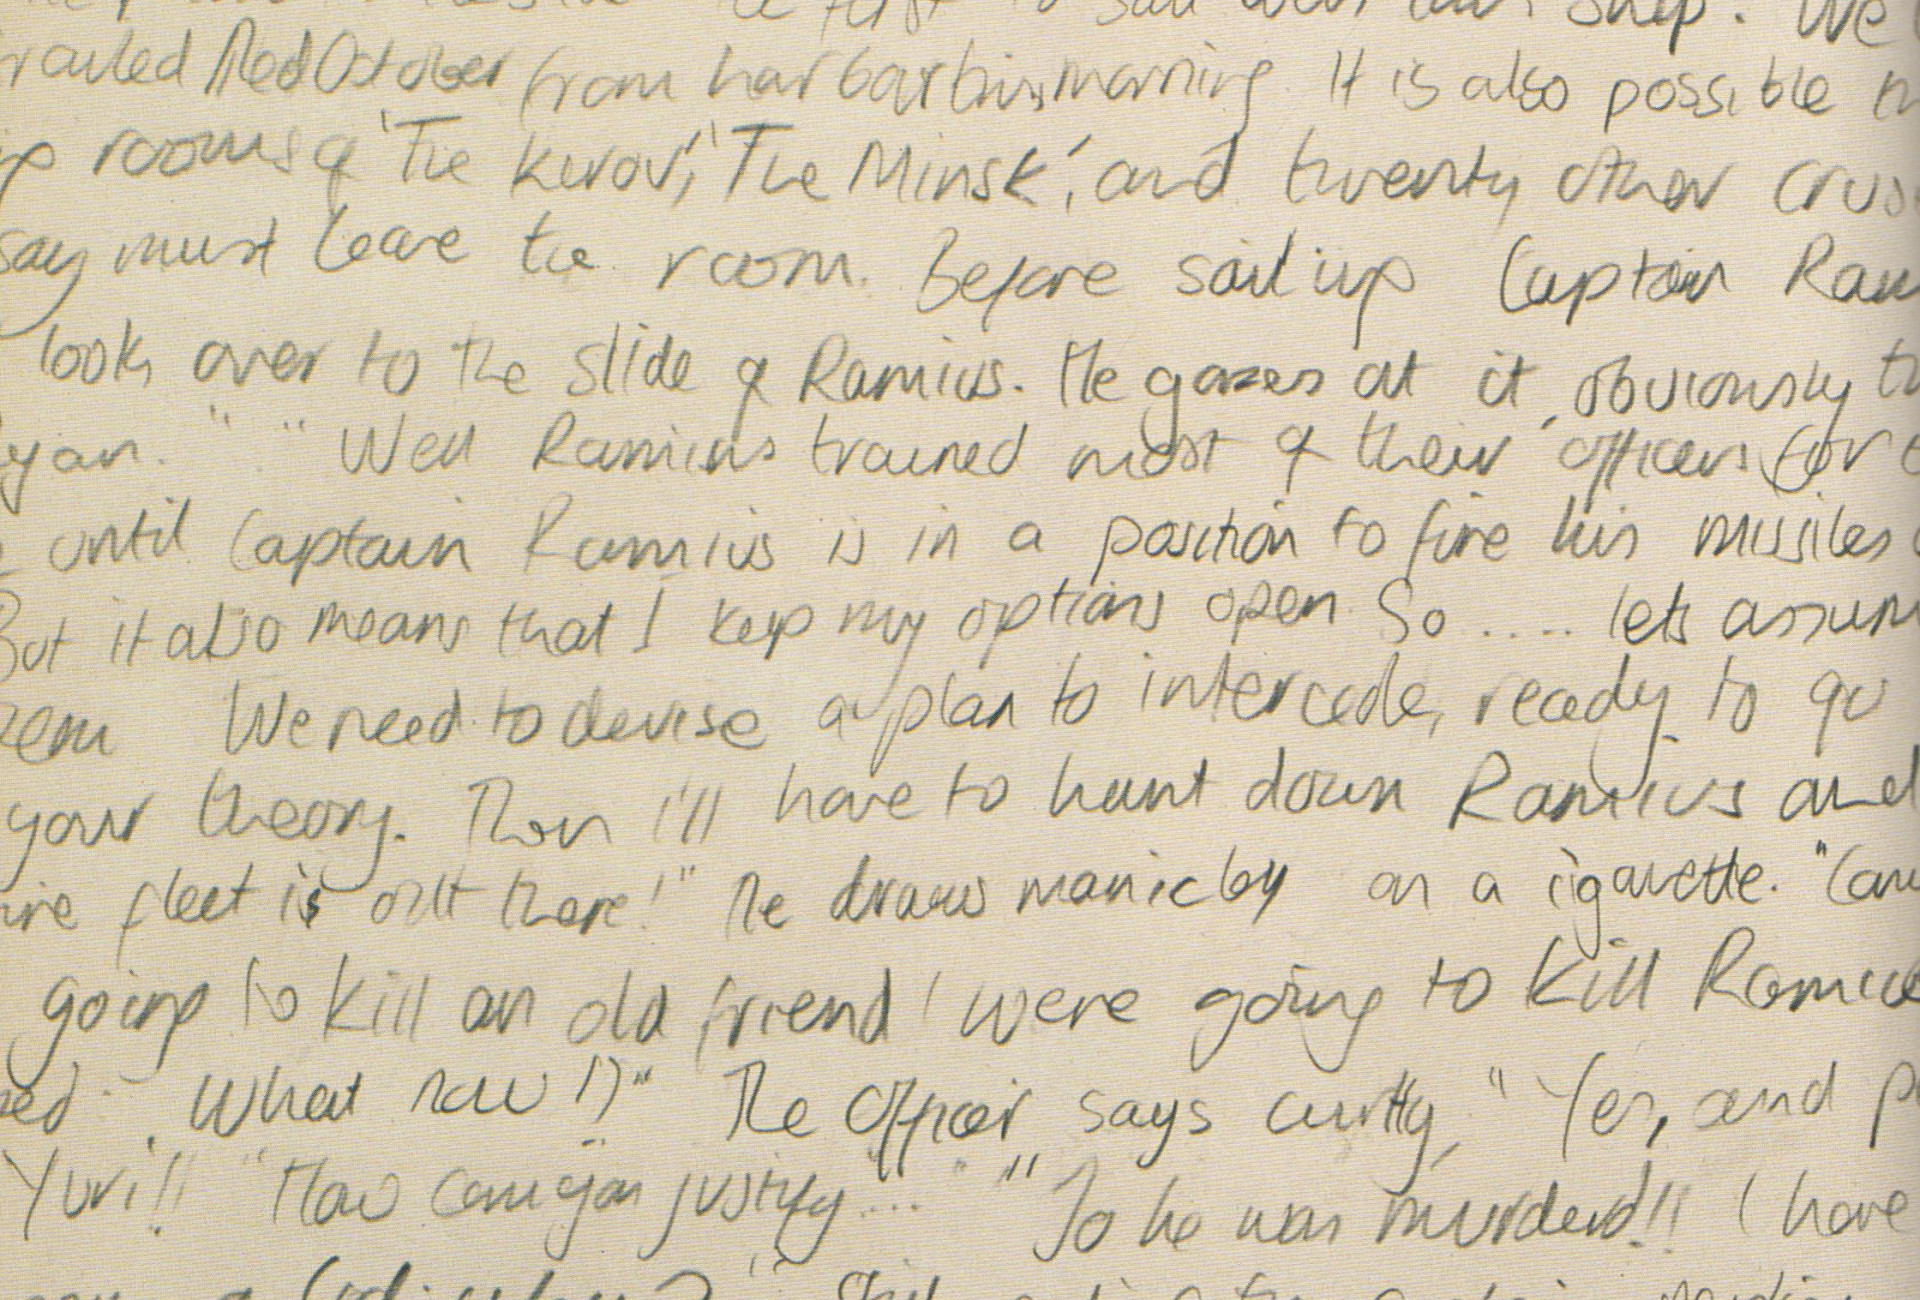 to sail with ship. We
trailed Red October from harbour this morning. It is also possible
rooms of 'The Kirov', 'The Minsk', and twenty other
say must leave the room. Before sail up Captain Ram
look over to the slide of Ramius. He gazes at it, obviously
yan." "Well Ramius trained most of their officers for
until Captain Ramius is in a position to fire his missiles
But it also means that I keep my options open. So ..... lets assum
We need to devise a plan to intercede, ready to go
your theory. Then I'll have to hunt down Ramius and
fleet is out there!" He draws manicly on a cigarette. "Can
going to kill an old friend! were going to kill Ramius
What now!?" The Officer says curtly, "Yes, and p
Yuri!! "How can you justify...." "So he was murderd!! I have